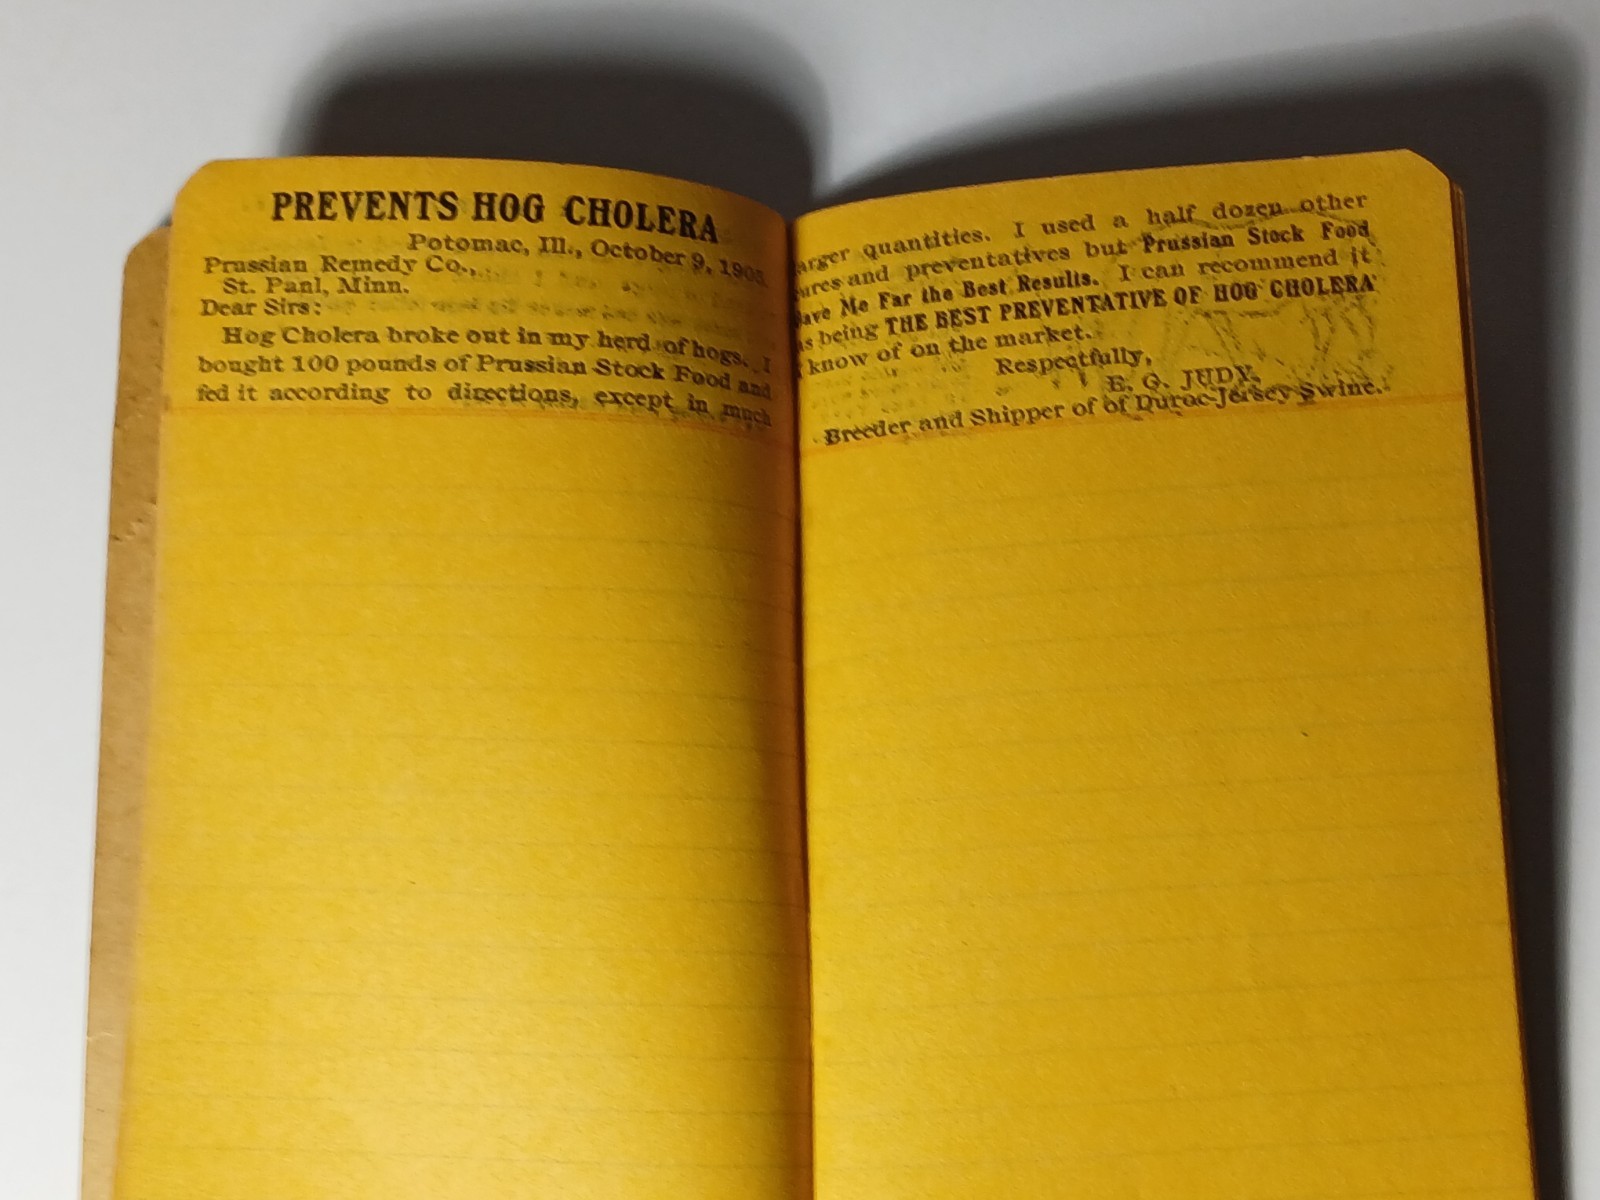 PREVENTS HOG CHOLERA
Potomac, Ill., October 9,
Prussian Remedy Co.,
St. Paul, Minn.
Dear Sirs:
Hog Cholera broke out in my herd of hogs. I
bought 100 pounds of Prussian Stock Food and
fed it according to directions, except in much
larger quantities. I used a half dozen other
cures and preventatives but Prussian Stock Food
Gave Me Far the Best Results. I can recommend it
as being THE BEST PREVENTATIVE OF HOG CHOLERA
I know of on the market.
Respectfully,
E. G. JUDY,
Breeder and Shipper of of Duroc-Jersey Swine.